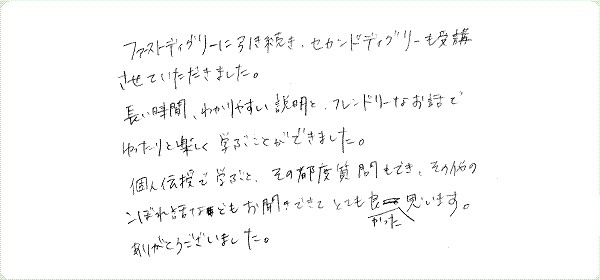 ファーストディグリーに引き続き、セカンドディグリーも受講
させていただきました。
長い時間、わかりやすい説明と、フレンドリーなお話で
ゆったりと楽しく学ぶことができました。
個人伝授で学ぶと、その都度質問もでき、その他の
こぼれ話なども お聞きできて とても良かった 思います。
ありがとうございました。